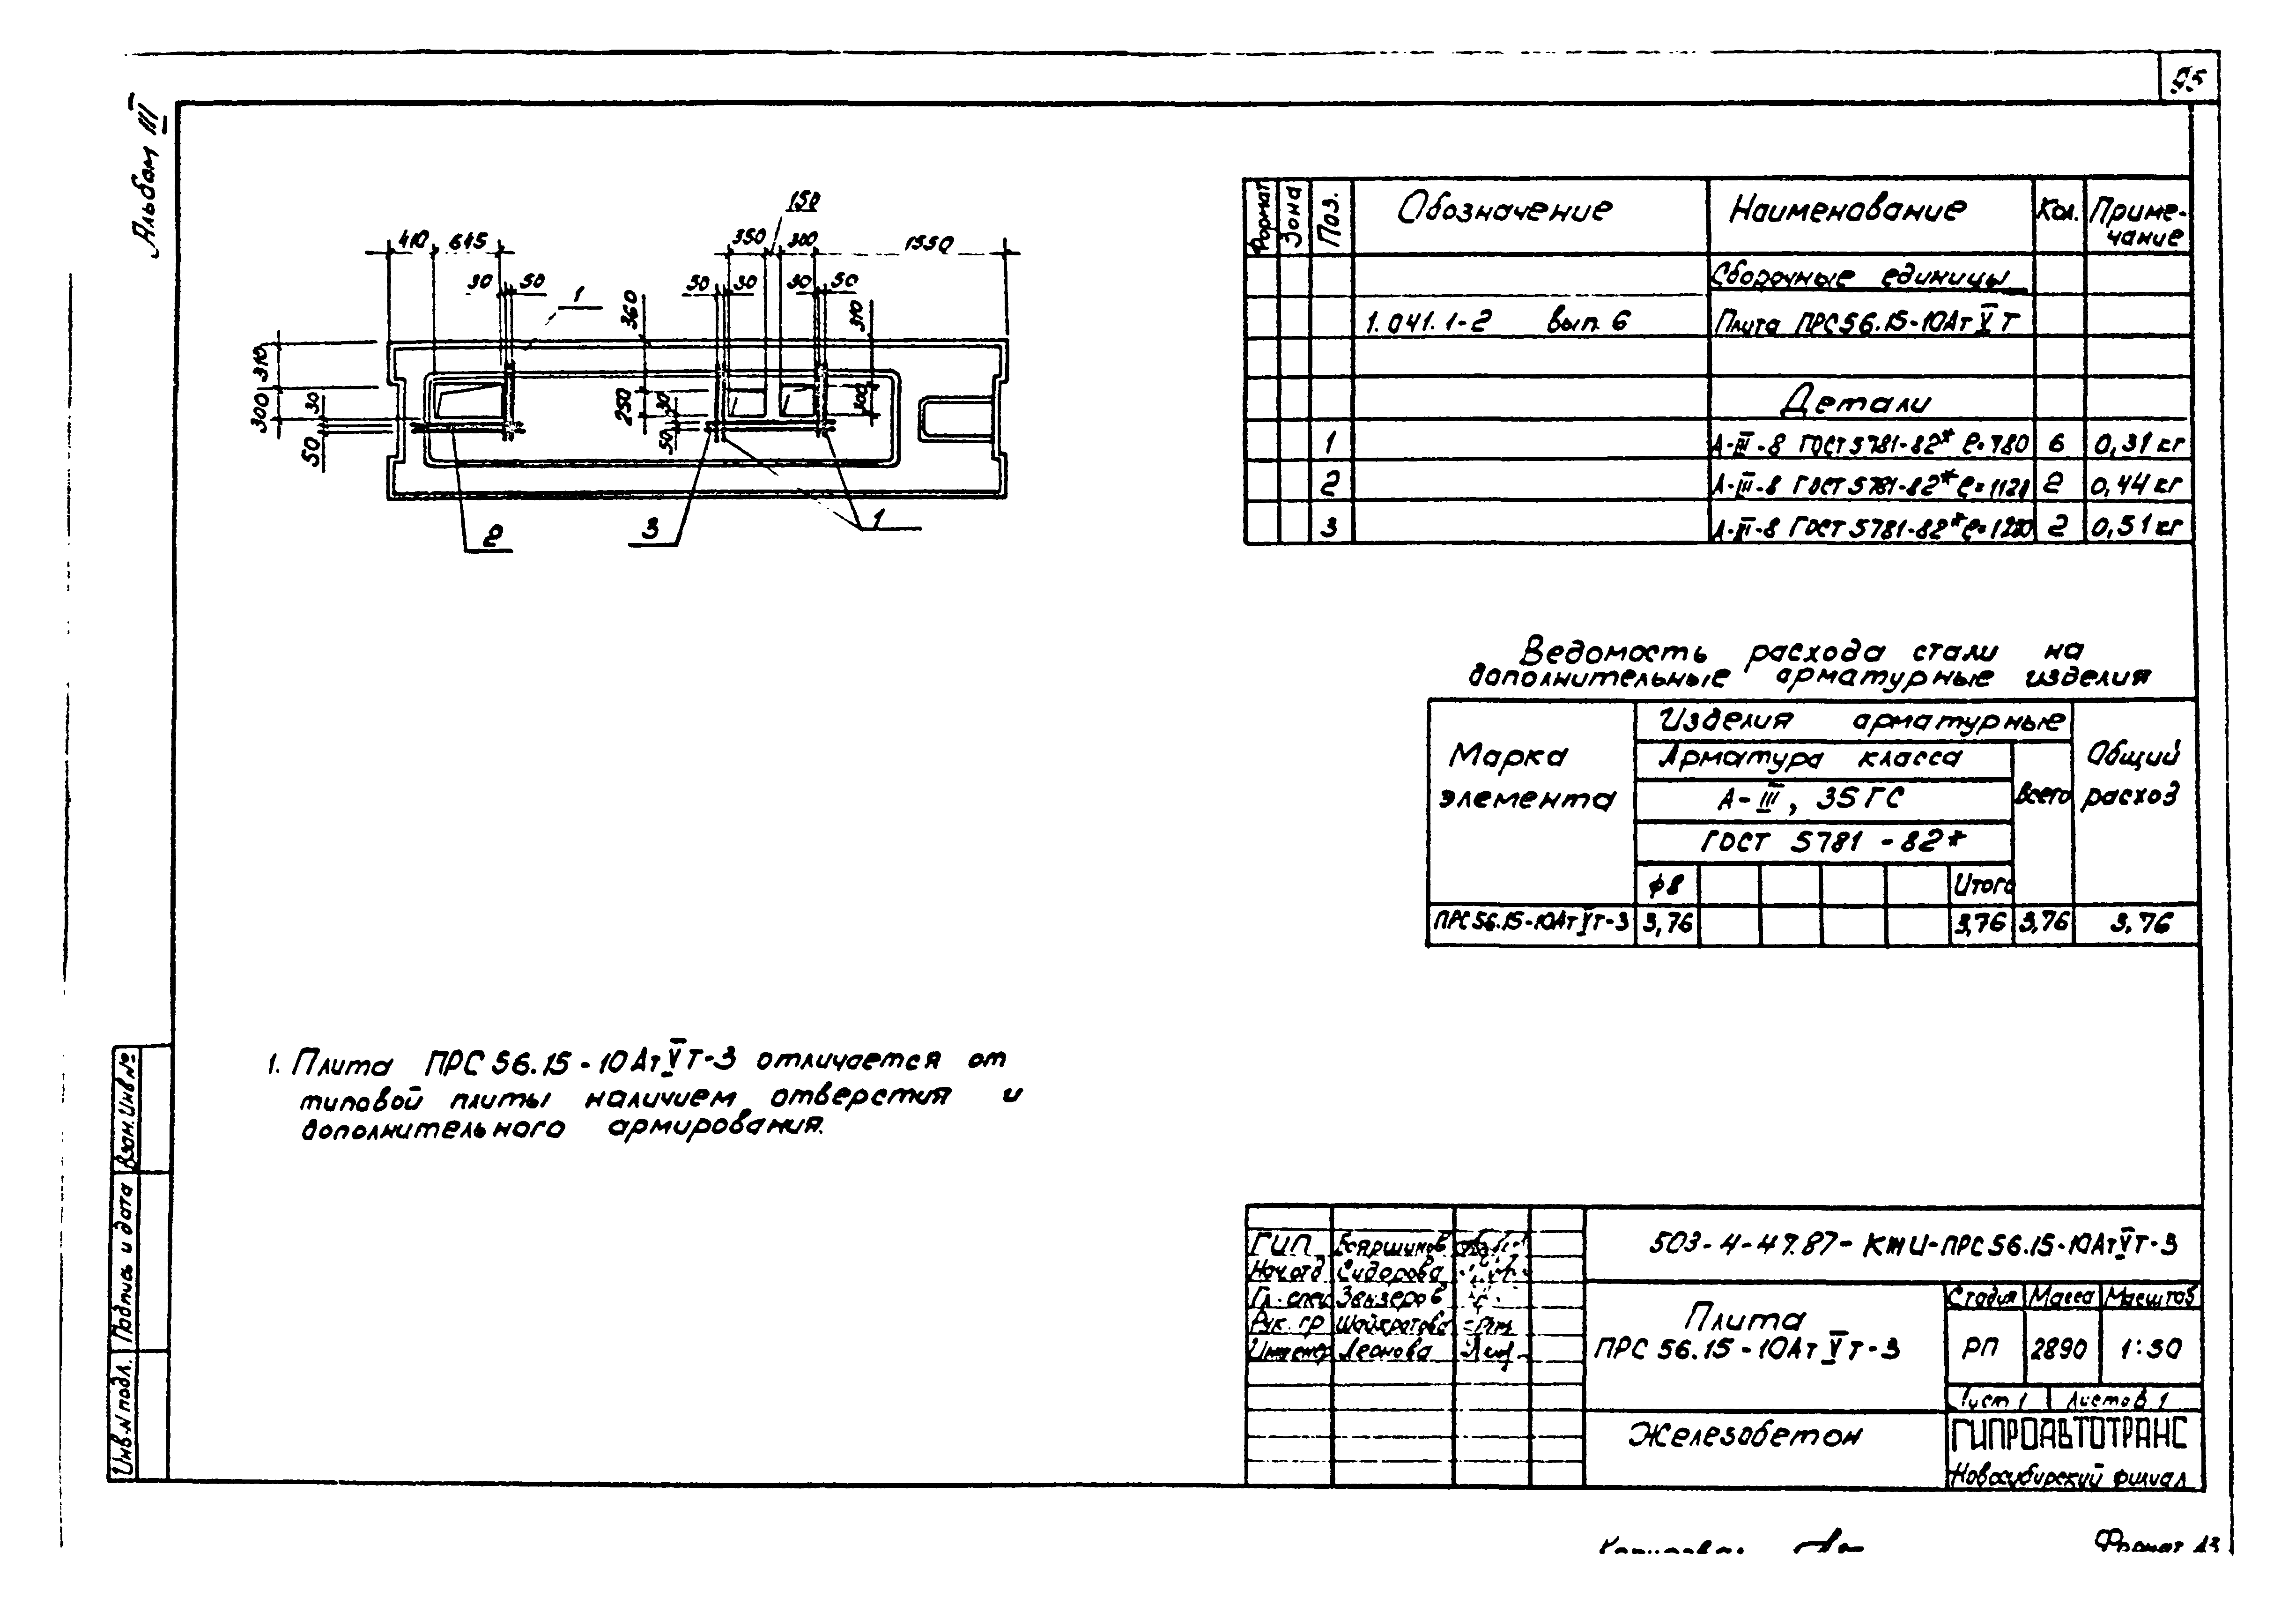 95
Альбом III
Формат
Зона
Поз.
Обозначение
Наименование
Кол.
Приме-
чание
Сборочные единицы
1.041.1-2 вып. 6
Плита ПРС56.15-10АтVТ
Детали
1 А-III-8 ГОСТ 5781-82* ℓ=780 6 0,31кг
2 А-III-8 ГОСТ 5781-82* ℓ=1120 2 0,44кг
3 А-III-8 ГОСТ 5781-82* 2 0,51кг
150
410 645 350 300 1550
30 50 50 30 30 50
1
360 310
310
300 30 50
250 30 50
300
2 3 1
Ведомость расхода стали на
дополнительные арматурные изделия
Марка
элемента
Изделия арматурные
Арматура класса
А-III, 35ГС
ГОСТ 5781-82*
ф8 Итого
Всего
Общий
расход
ПРС56.15-10АтVТ-3 3,76 3,76 3,76 3,76
1. Плита ПРС56.15-10АтVТ-3 отличается от
типовой плиты наличием отверстия и
дополнительного армирования.
Взам.Инв.№
Подпись и дата
Инв.N подл.
ГИП Бояршинов
Нач.отд Сидорова
Гл. спец Звизеров
Рук. гр
Инженер Леонова
503-4-47.87-КЖИ-ПРС56.15-10АтVТ-3
Плита
ПРС56.15-10АтVТ-3
Стадия Масса Масштаб
РП 2890 1:50
Лист 1 Листов 1
Железобетон
ГИПРОАВТОТРАНС
Новосибирский филиал
Копировал
Формат А3